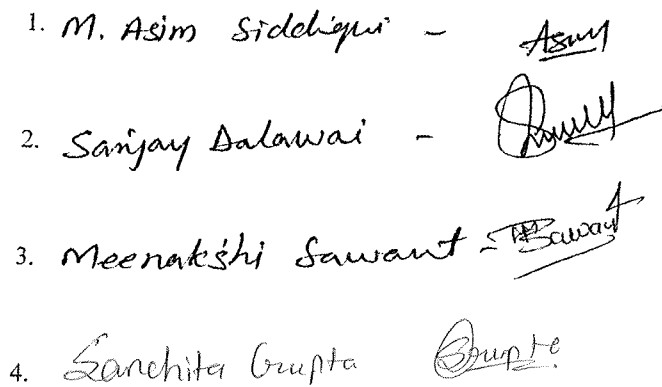 1. M. Asim Siddiqui - Asim
2. Sanjay Dalawai -
3. Meenakshi Sawant - Sawant
4. Sanchita Gupta Gupta